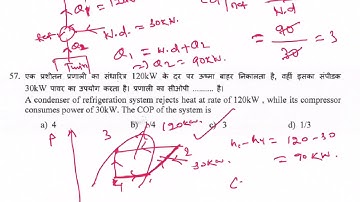 Q₁ = 120kW
W.d. = 30kW.
Q₂
Q₁ = W.d + Q₂
⇒ Q₂ = 90kW
W.d
= 90/30 = 3
57. एक प्रशीतन प्रणाली का संघारित्र 120kW के दर पर ऊष्मा बाहर निकालता है, वहीं इसका संपीडक
30kW पावर का उपयोग करता है। प्रणाली का सीओपी .......... है।
A condenser of refrigeration system rejects heat at rate of 120kW , while its compressor
consumes power of 30kW. The COP of the system is
a) 4 b) 1/4 c) 3 d) 1/3
P 120kW.
2
30kW.
1
h₁-h₄ = 120-30
= 90kW.